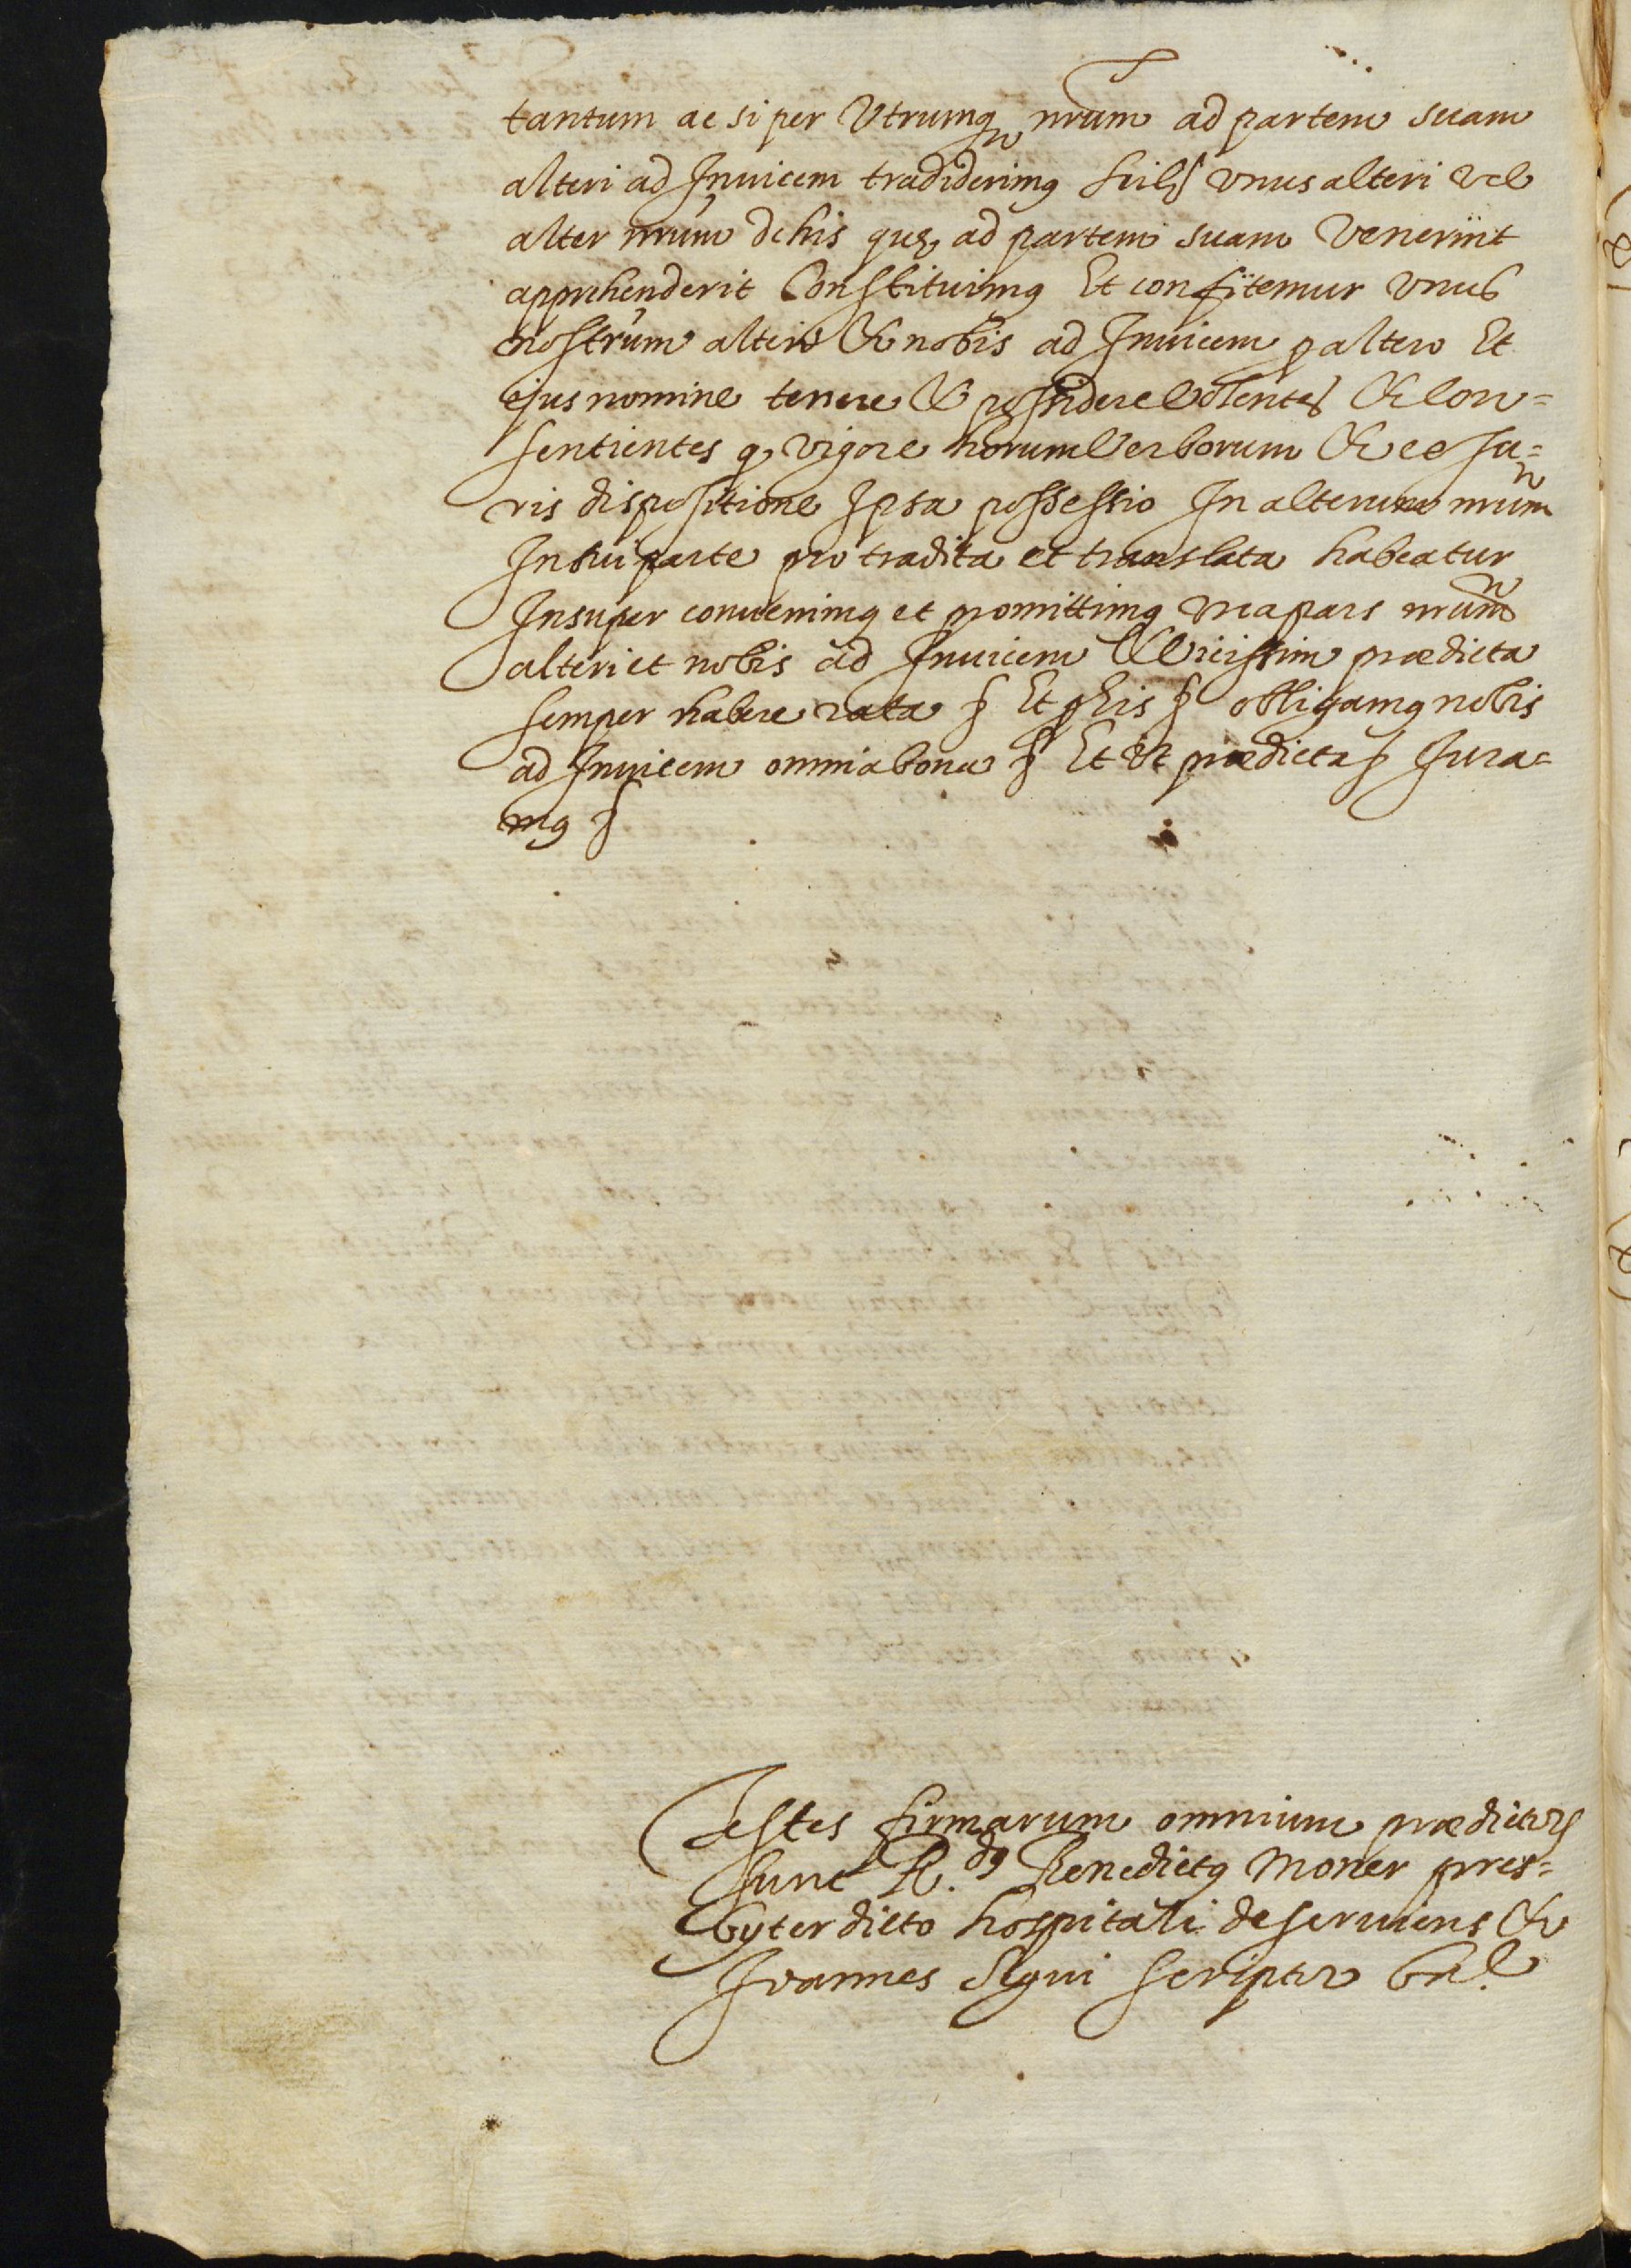 tantum ac si per Utrumq nrum ad partem suam
alteri ad Invicem tradiderimq scil; unus alteri vel
alter nrum de his quę ad partem suam venerint
apprehenderit Constituimq Et confitemur unus
nostrum alteri & nobis ad Invicem p altero Et
ejus nomine tenere & possidere Volentes & Con=
sentientes q vigore horum Verborum & ee Ju=
ris dispositione Ipsa possessio In alterum nrum
In sui parte pro tradita et translata habeatur
Insuper convenimq et promittimq una pars nrum
alteri et nobis ad Invicem & Vicissim prædicta
semper habere rata § Et p his § obligamq nobis
ad Invicem omnia bona § Et Ut prædicta § Jura=
mq §
Testes firmarum omnium prædictorꝝ
sunt R.dq Benedictq Moner pres=
byter dicto hospitali deserviens &
Joannes Segui scriptor